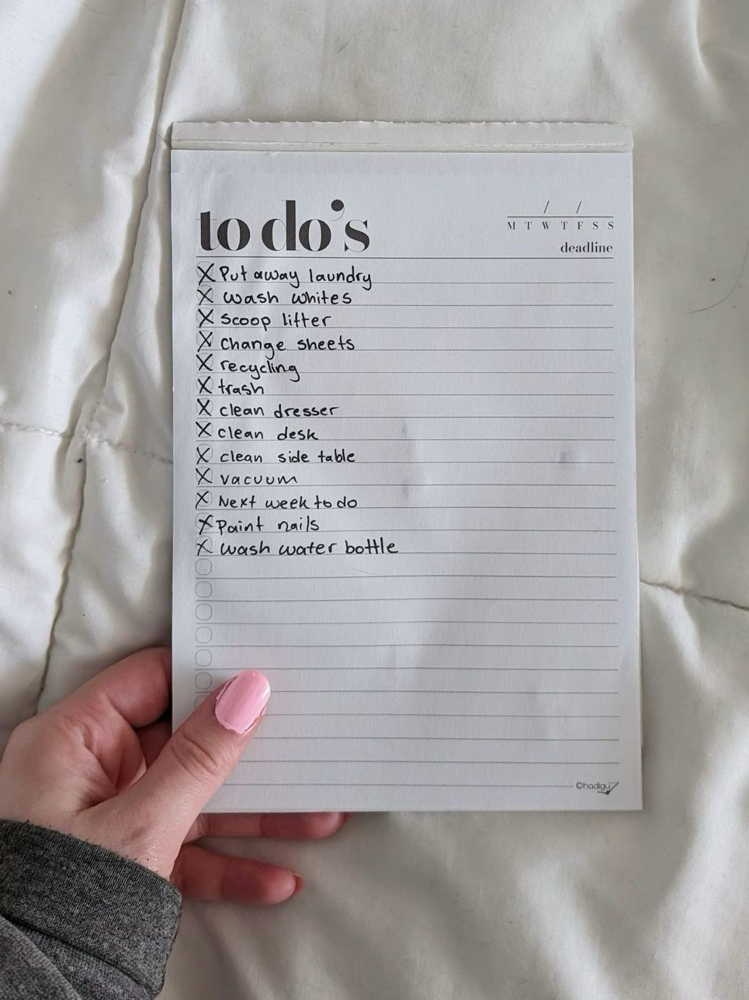 to do's
/ /
M T W T F S S
deadline
Put away laundry
wash whites
scoop litter
change sheets
recycling
trash
clean dresser
clean desk
clean side table
vacuum
Next week to do
Paint nails
wash water bottle